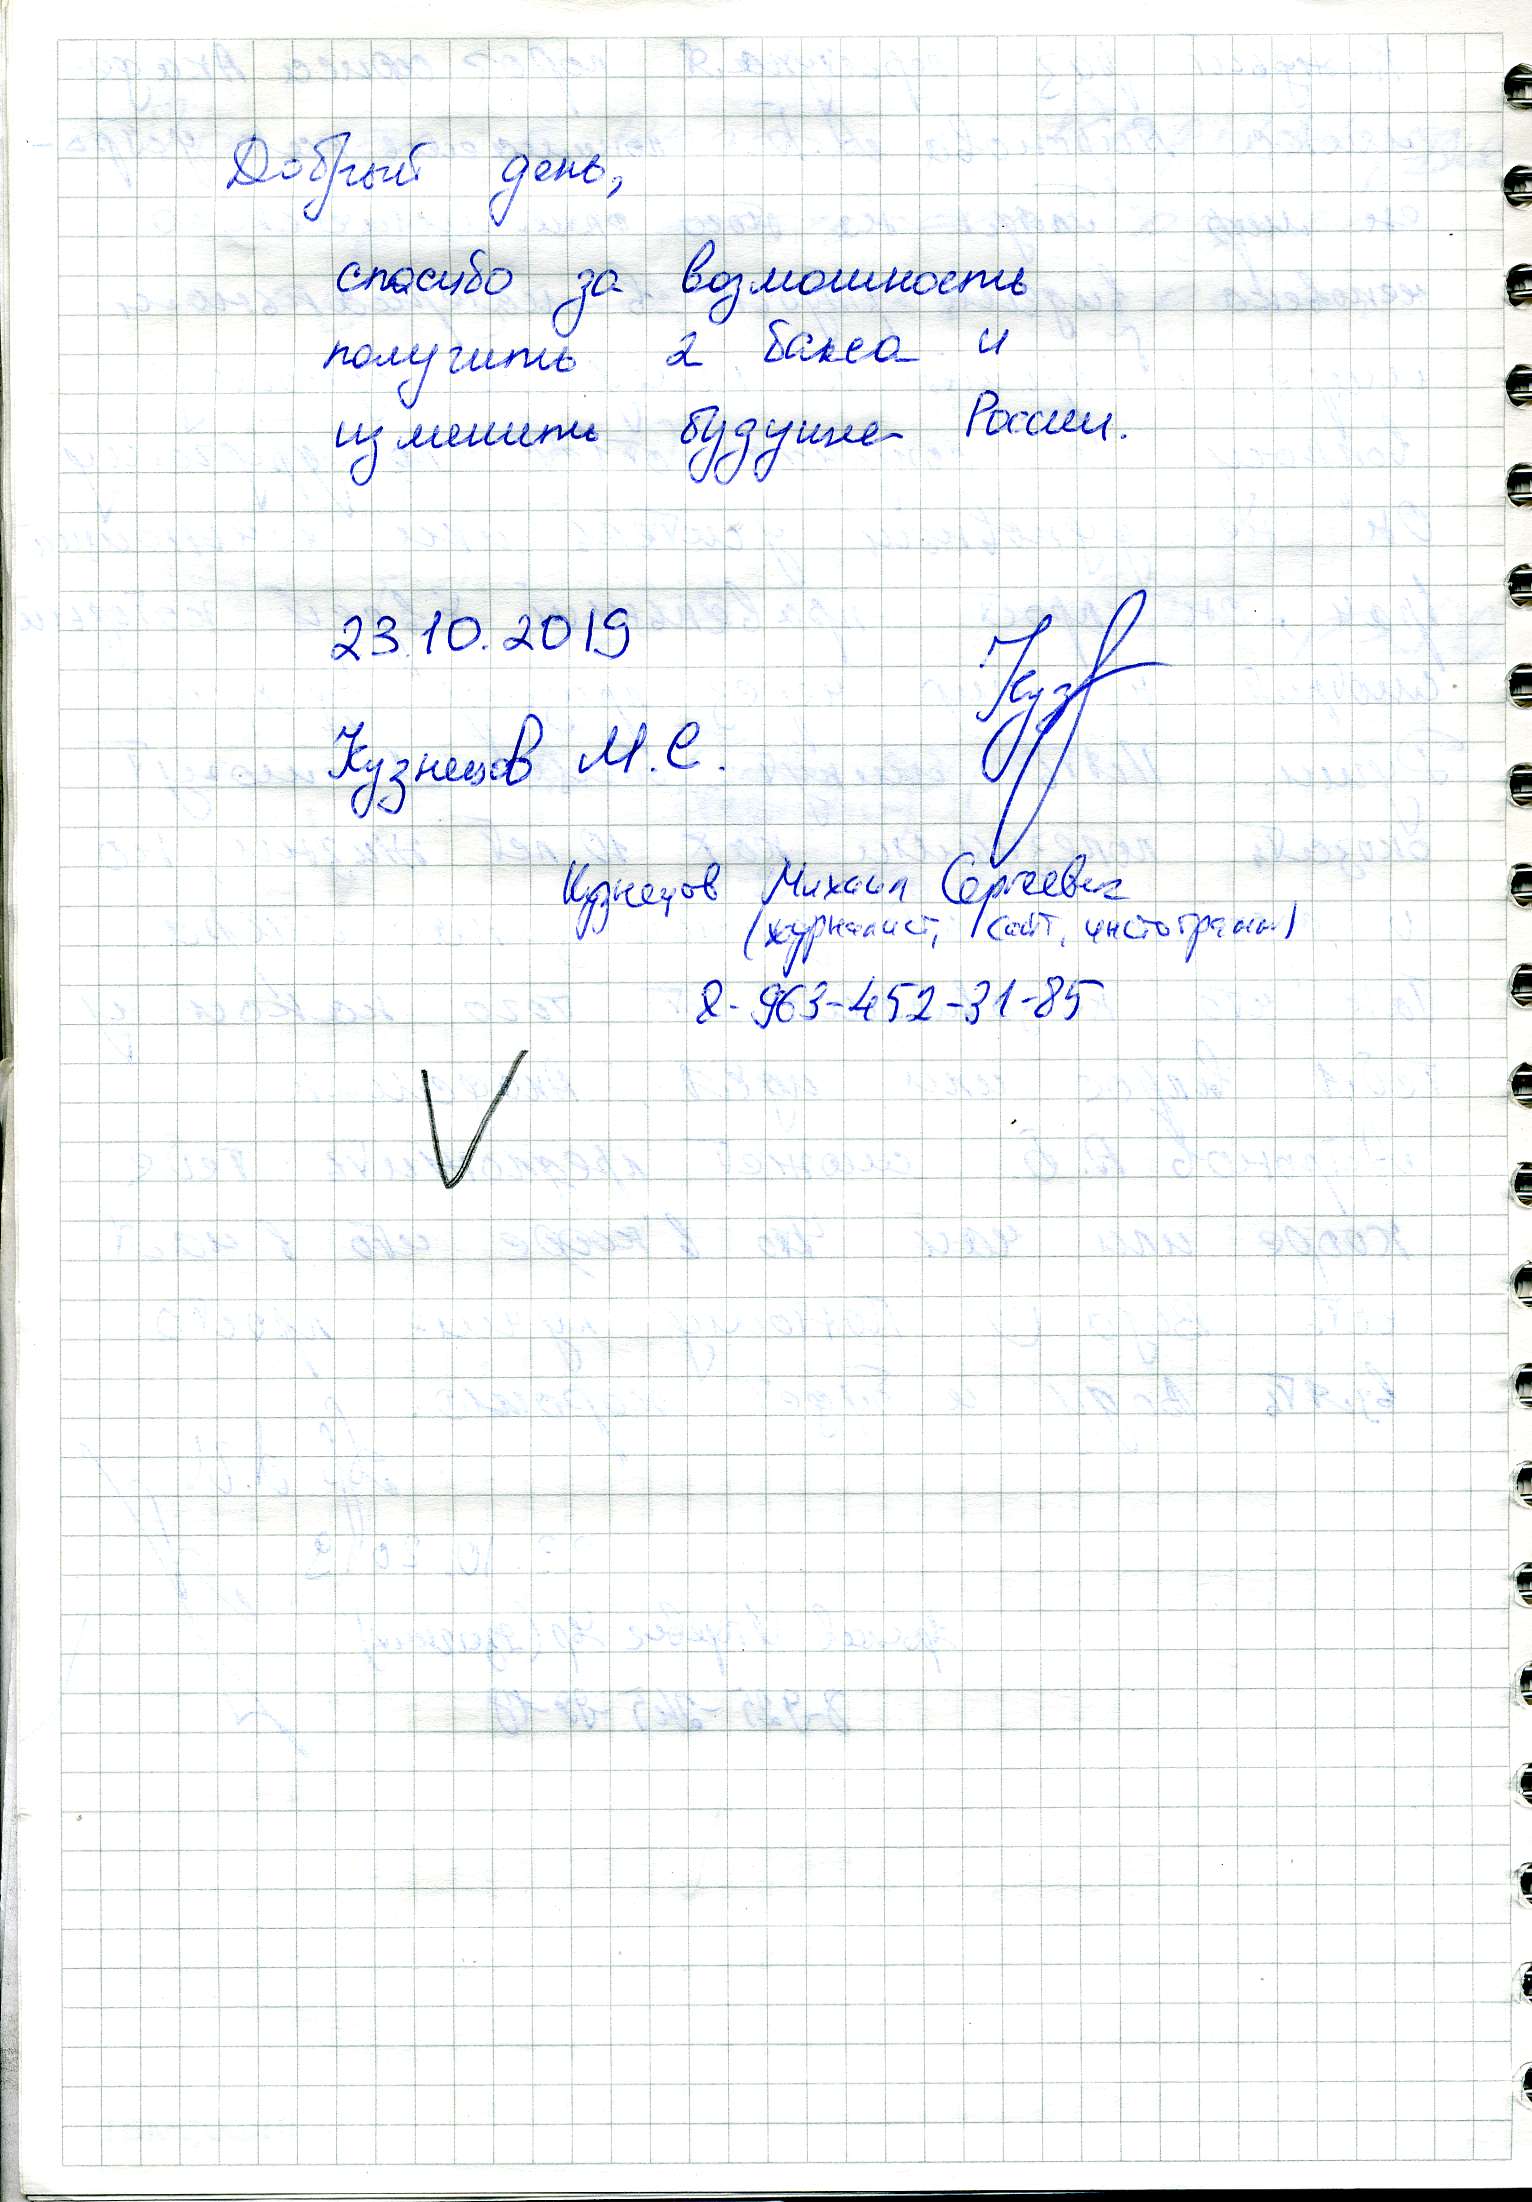 Добрый день,
спасибо за возмошность
получить 2 бакса и
изменить будущее России.
23.10.2019
Куз
Кузнецов М.С.
Кузнецов Михаил Сергеевич
(журналист, сайт, инстаграмм)
8-963-452-31-85